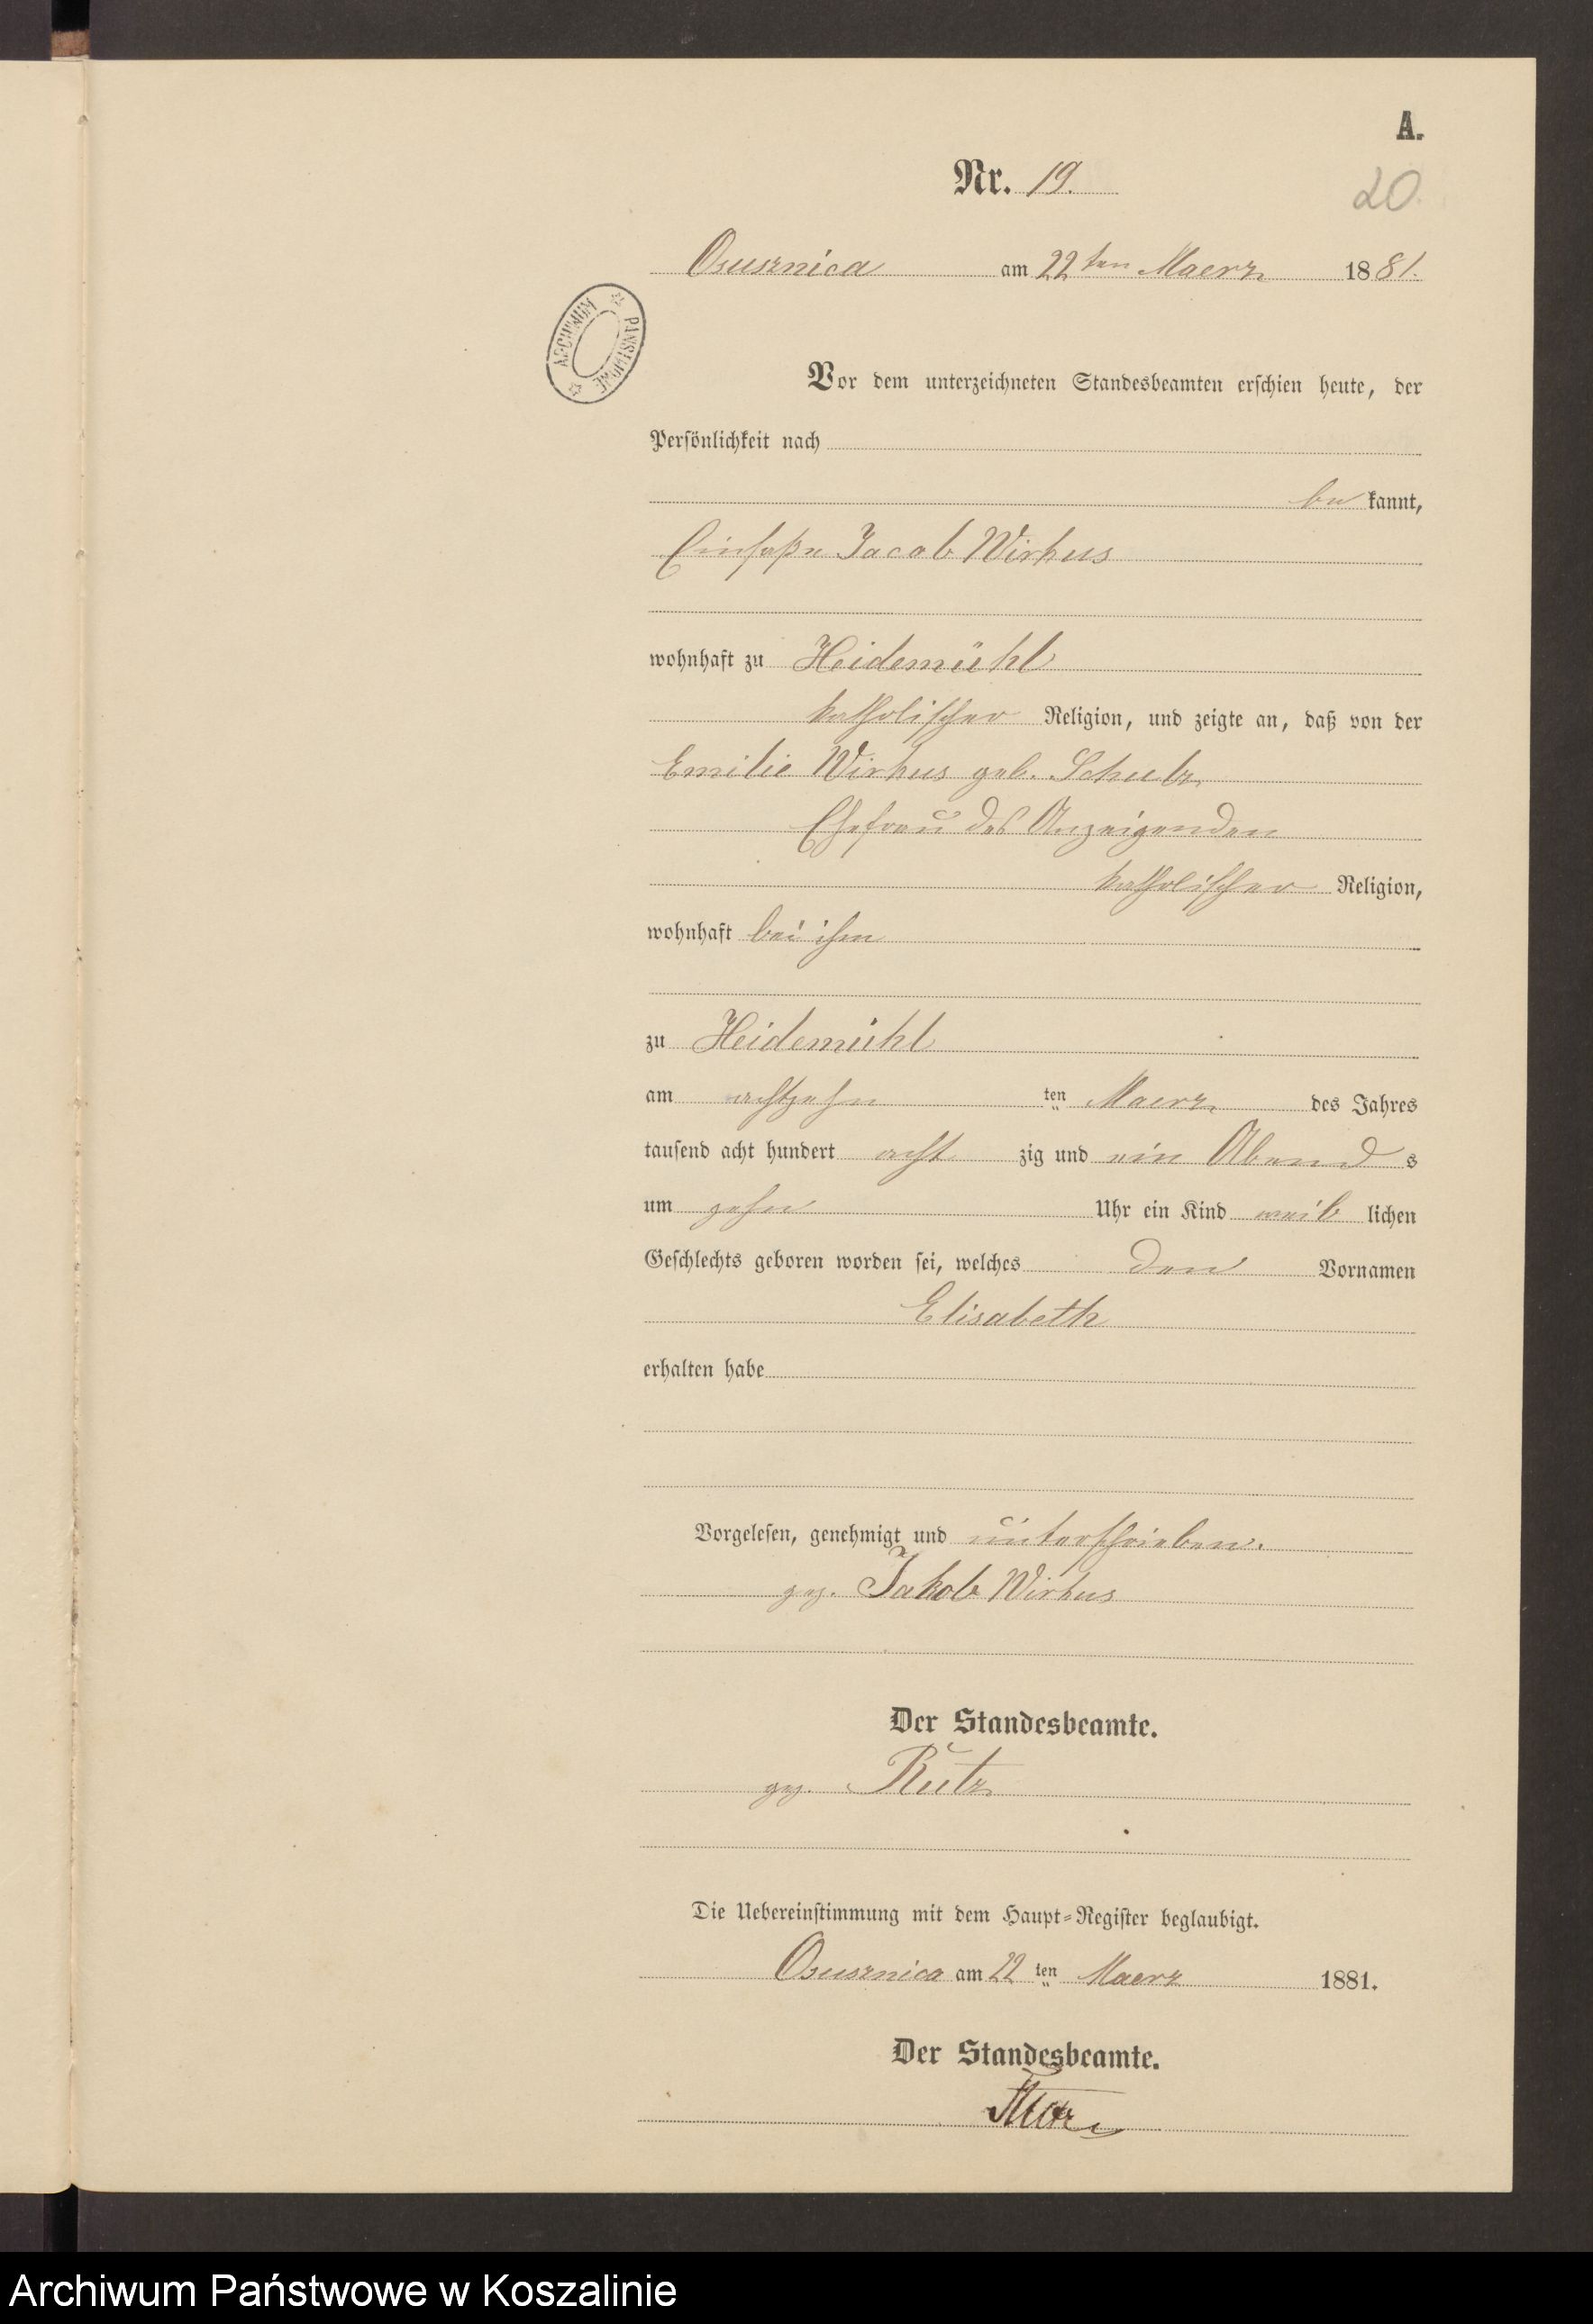 A.
Nr. 19.
20.
Osusznica am 22ten Maerz 1881.
ARCHIWUM PAŃSTWOWE
Vor dem unterzeichneten Standesbeamten erschien heute, der
Persönlichkeit nach
be kannt,
Einsaße Jacob Wirkus
wohnhaft zu Heidemühl
katholischer Religion, und zeigte an, daß von der
Emilie Wirkus geb. Schulz
Ehefrau des Anzeigenden
katholischer Religion,
wohnhaft bei ihm
zu Heidemühl
am achtzehn ten Maerz des Jahres
tausend acht hundert acht zig und ein Abend s
um zehn Uhr ein Kind weib lichen
Geschlechts geboren worden sei, welches den Vornamen
Elisabeth
erhalten habe
Vorgelesen, genehmigt und unterschrieben.
gez. Jakob Wirkus
Der Standesbeamte.
gez. Rutz
Die Uebereinstimmung mit dem Haupt-Register beglaubigt.
Osusznica am 22 ten Maerz 1881.
Der Standesbeamte.
Rutz
Archiwum Państwowe w Koszalinie